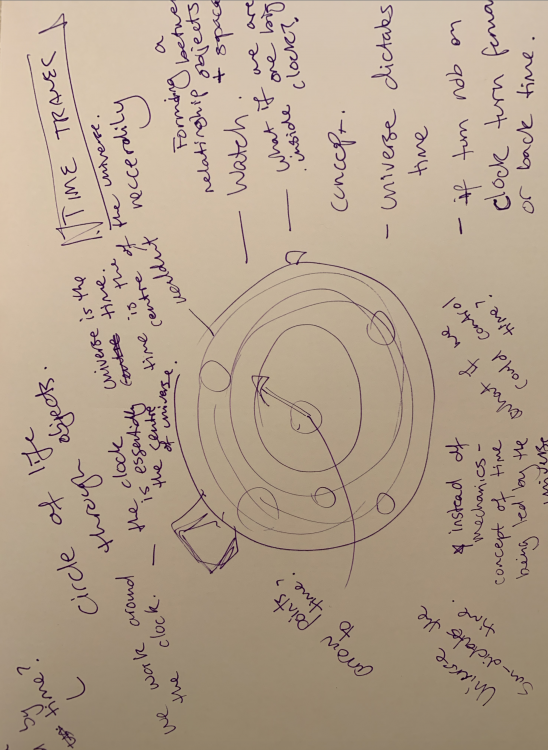 TIME TRAVEL
Forming a
relationship between
objects
+ space
— Watch.
— what if we are
inside one big
clock?
concept.
- universe dictates
time
- if turn nob on
clock turn forward
or back time.
universe is the
time.
the centre of the universe.
what if we
could control
time?
circle of life
through objects.
the clock
is essentially
the centre
of universe.
— we work around
the clock.
* instead of
mechanics -
concept of time
being led by the
universe
arrow points
to time.
Universe
sun-dictates the
time.
by time?
time?